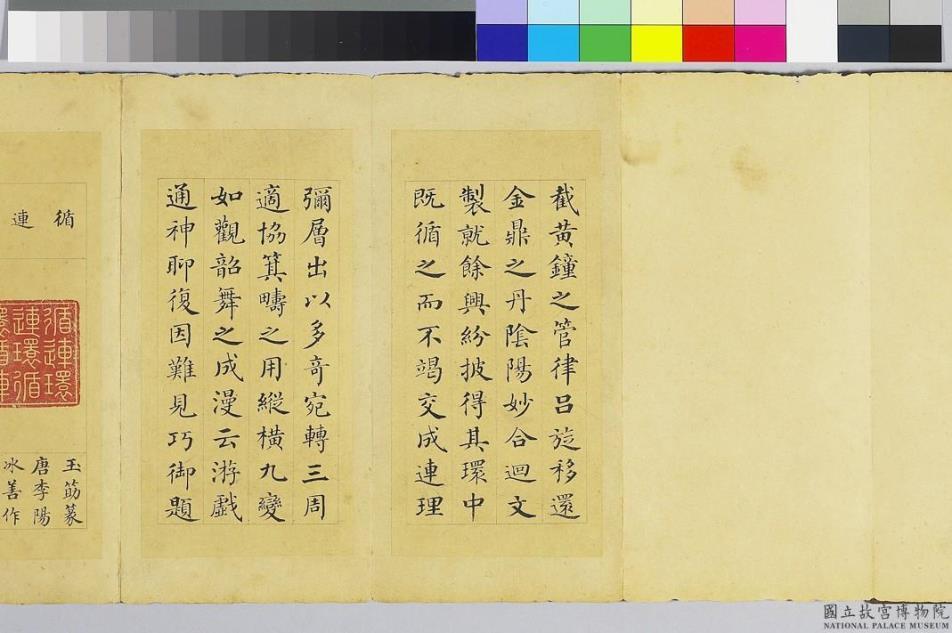 截黃鐘之管律呂旋移還
金鼎之丹陰陽妙合迴文
製就餘興紛披得其環中
既循之而不竭交成連理
彌層出以多奇宛轉三周
適協箕疇之用縱橫九變
如觀韶舞之成漫云游戲
通神聊復因難見巧御題
循
連
循連環
連環循
玉筯篆
唐李陽
冰善作
國立故宮博物院
NATIONAL PALACE MUSEUM